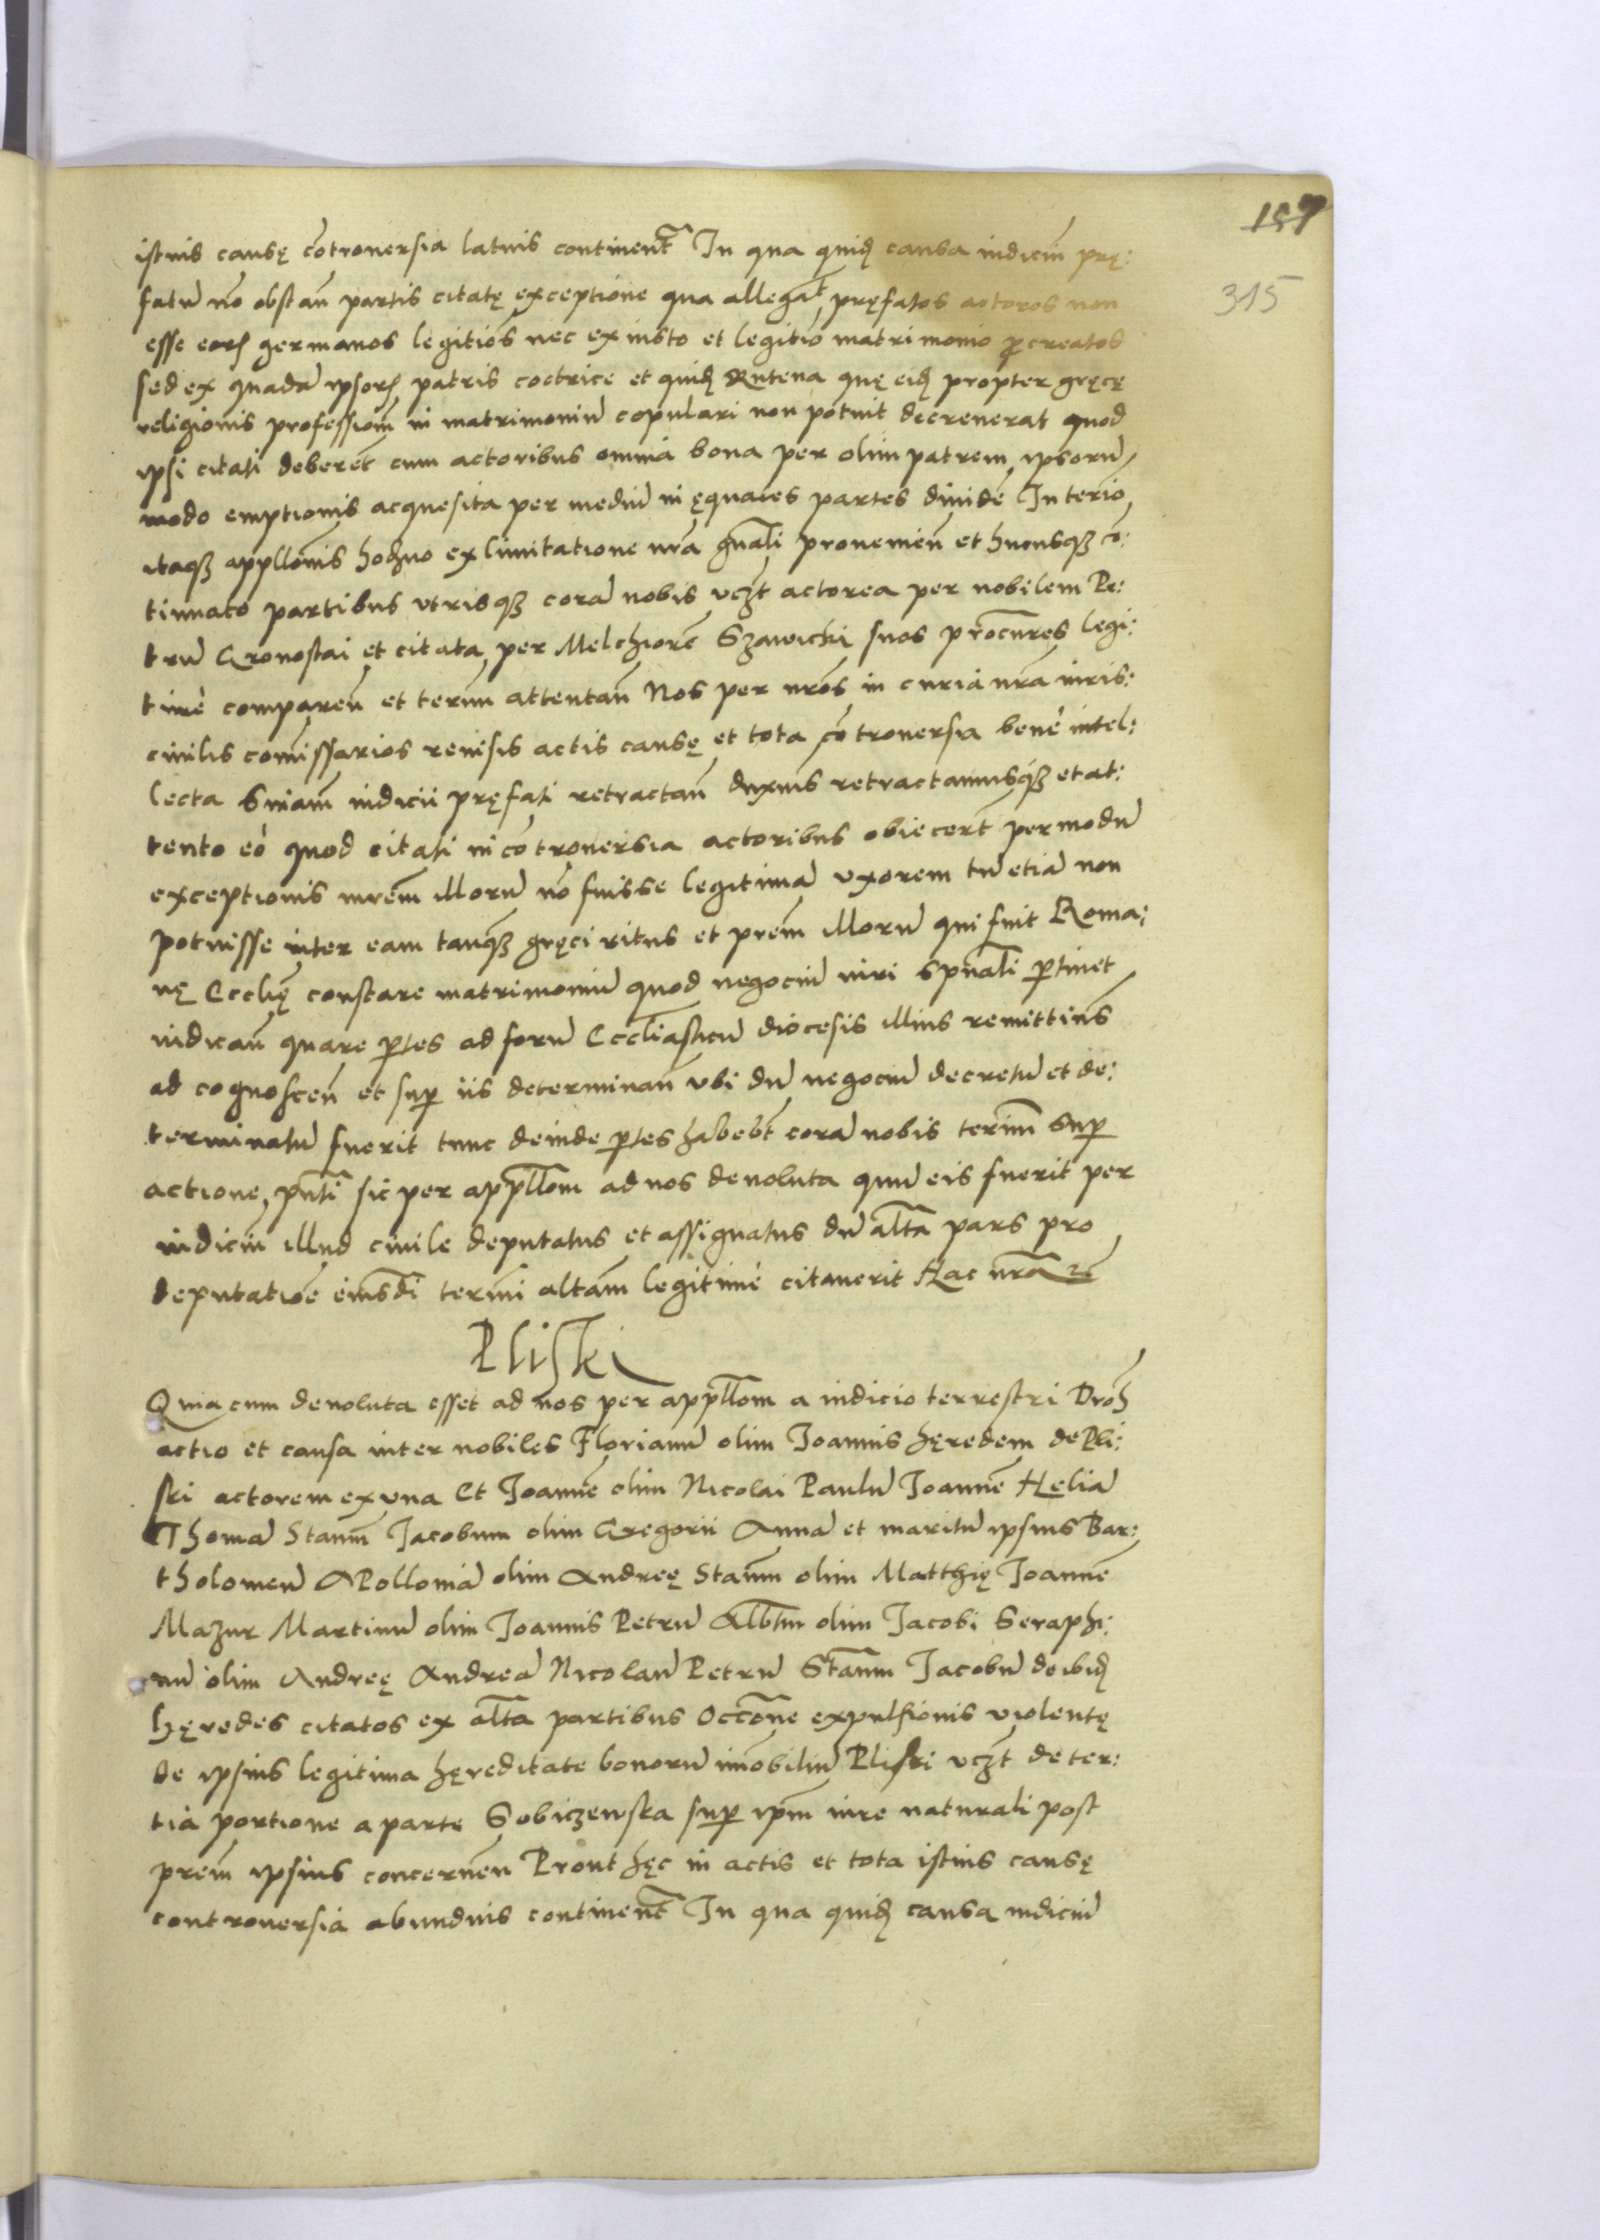 157
315
istius causę cōtrouersia latius continent̄ In qua quidꝫ causa iudiciū prę:
fatū nō obstan̄ partis citatę exceptione qua allegat̄, pręfatos actores non
esse eorꝫ germanos legitīos nec ex iusto et legitīo matrimonio ꝓcreatos
sed ex quadā ipsorꝫ patris coctrice et quidꝫ Rutena quę eidꝫ propter gręcę
religionis professionē in matrimoniū copulari non potuit decreuerat quod
ipsi citati deberēt cum actoribus omnia bona per olim patrem ipsorū
modo emptionis acquesita per mediū in ęquales partes diuidē In terīo
itaqꝫ appllonis hodᷓno ex limitatione nrā gnāli proueniēn et hucusqꝫ cō:
tinuato partibus utrisqꝫ corā nobis vczt actorea per nobilem Pe:
trū Cronostai et citata per Melchiorē Szawicki suos procures legi:
timè comparen̄ et termī attentan̄ Nos per nrōs in curia nrā iuris:
ciuilis com̄issarios reuisis actis causę et tota cōtrouersia benè intel:
lecta Sniam̄ iudicii pręfati retractan̄ duxim̄s retractamusqꝫ et at:
tento eò quod citati in cōtrouersia actoribus obiecerūt per modū
exceptionis mrem̄ illorū nō fuisse legitimā vxorem tū etiā non
potuisse inter eam tanqꝫ gręci ritus et prem̄ illorū qui fuit Roma:
nę Ecclię constare matrimoniū quod negociū iuri spūali ꝑtinet
iudican̄ quare ꝑtes ad forū Eccliasticū diocesis illius remittim̄s
ad cognoscen̄ et suꝑ iis determinan̄ vbi dū negociū decretū et de:
terminatū fuerit tunc deinde ꝑtes habebt̄ corā nobis termin̄ suꝑ
actione, pn̄ti sic per appllom̄ ad nos deuoluta qui eis fuerit per
iudiciū illud ciuile deputatus et assignatus dū altā pars pro
deputatioē eiusdī termi̅ altām legitimè citauerit Hac nrā ꝛc
Pliski
Quia cum deuoluta esset ad nos per appllom̄ a iudicio terrestri Droh̄
actio et causa inter nobiles Florianū olim Joannis hęredem de Pli:
ski actorem ex vna Et Joannē olim Nicolai Paulū Joannē Heliā
Thomā Stanm̄ Jacobum olim Gregorii Annā et maritū ipsius Bar:
tholomeū Apolloniā olim Andreę Stanm̄ olim Matthię Joannē
Mazur Martinū olim Joannis Petrū Albtm̄ olim Jacobi Seraphi:
nū olim Andreę Andreā Nicolaū Petrū Stanm̄ Jacobū de ibidꝫ
hęredes citatos ex altā partibus Occōne expulsionis violentę
de ipsius legitima hęreditate bonorū im̄obiliū Pliski vczt de ter:
tia portione a parte Sobiczewska suꝑ ipm̄ iure naturali post
prem̄ ipsius concernen̄ Prout hęc in actis et tota istius causę
controuersia abundius continent̄ In qua quidꝫ causa iudiciū